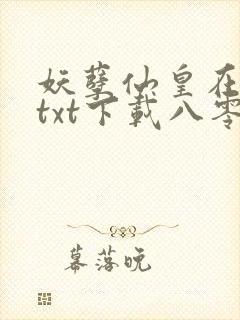 妖孽仙皇在
txt下载八零
幕落晚